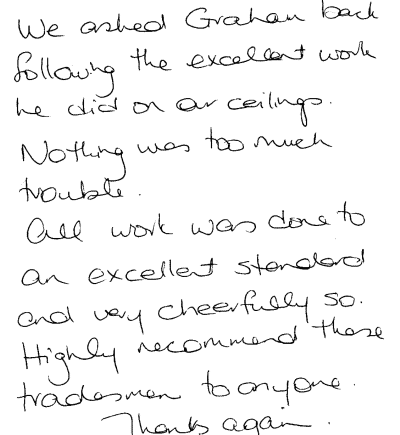 We asked Graham back
following the excellent work
he did on our ceilings.
Nothing was too much
trouble.
All work was done to
an excellent standard
and very cheerfully so.
Highly recommend these
tradesmen to anyone.
Thanks again.